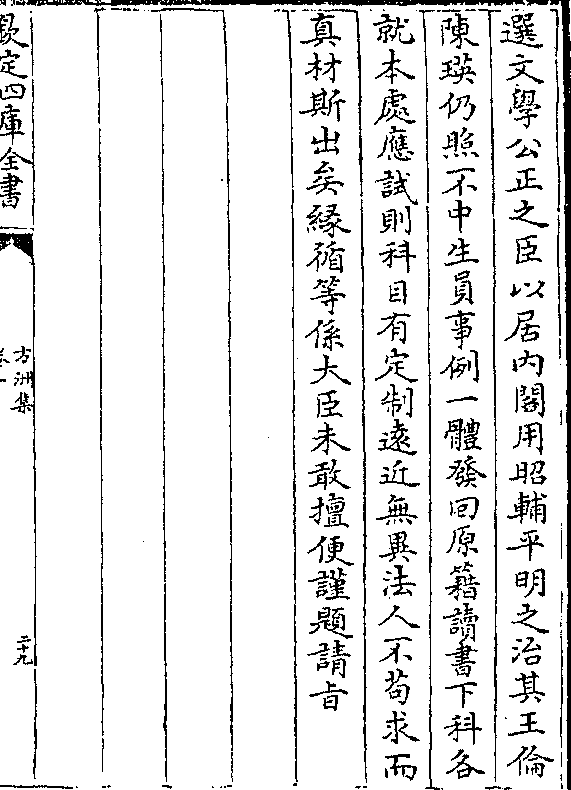 選文學公正之臣以居内閣用昭輔平明之治其王倫
陳瑛仍照不中生員事例一體發回原籍讀書下科各
就本處應試則科目有定制遠近無異法人不苟求而
真材斯出矣緣循等係大臣未敢擅便謹題請旨
欽定四庫全書
方洲集
卷一
二十九